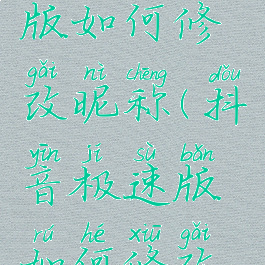 版如何修
gǎi nì chēng dǒu
改昵称(抖
yīn jí sù bǎn
音极速版
rú hé xiū gǎi
如何修改